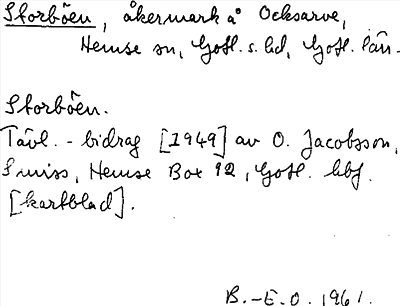 Storböen, åkermark å Ocksarve,
Hemse sn, Gotl. s. hd, Gotl. län.
Storböen.
Tävl.-bidrag [1949] av O. Jacobsson,
Smiss, Hemse Box 92, Gotl. hbf.
[kartblad].
B.-E.O. 1961.